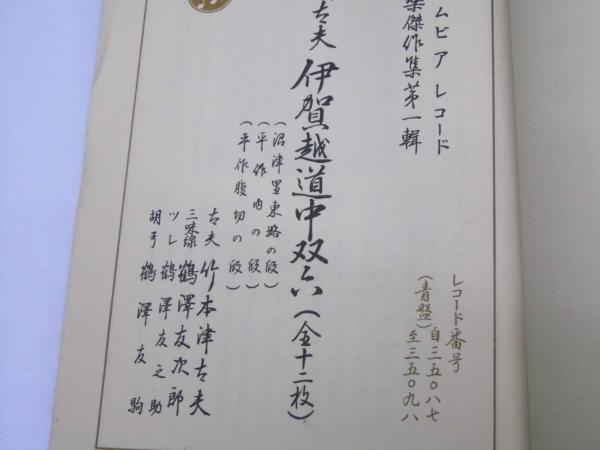 ムビアレコード
楽傑作集第一輯
レコード番号 自三五〇八七
(青盤) 至三五〇九八
太夫 伊賀越道中双六(全十二枚)
(沼津里東路の段)
(平作内の段)
(平作腹切の段)
太夫 竹本津太夫
三味線 鶴澤友次郎
ツレ 鶴澤友之助
胡弓 鶴澤友駒